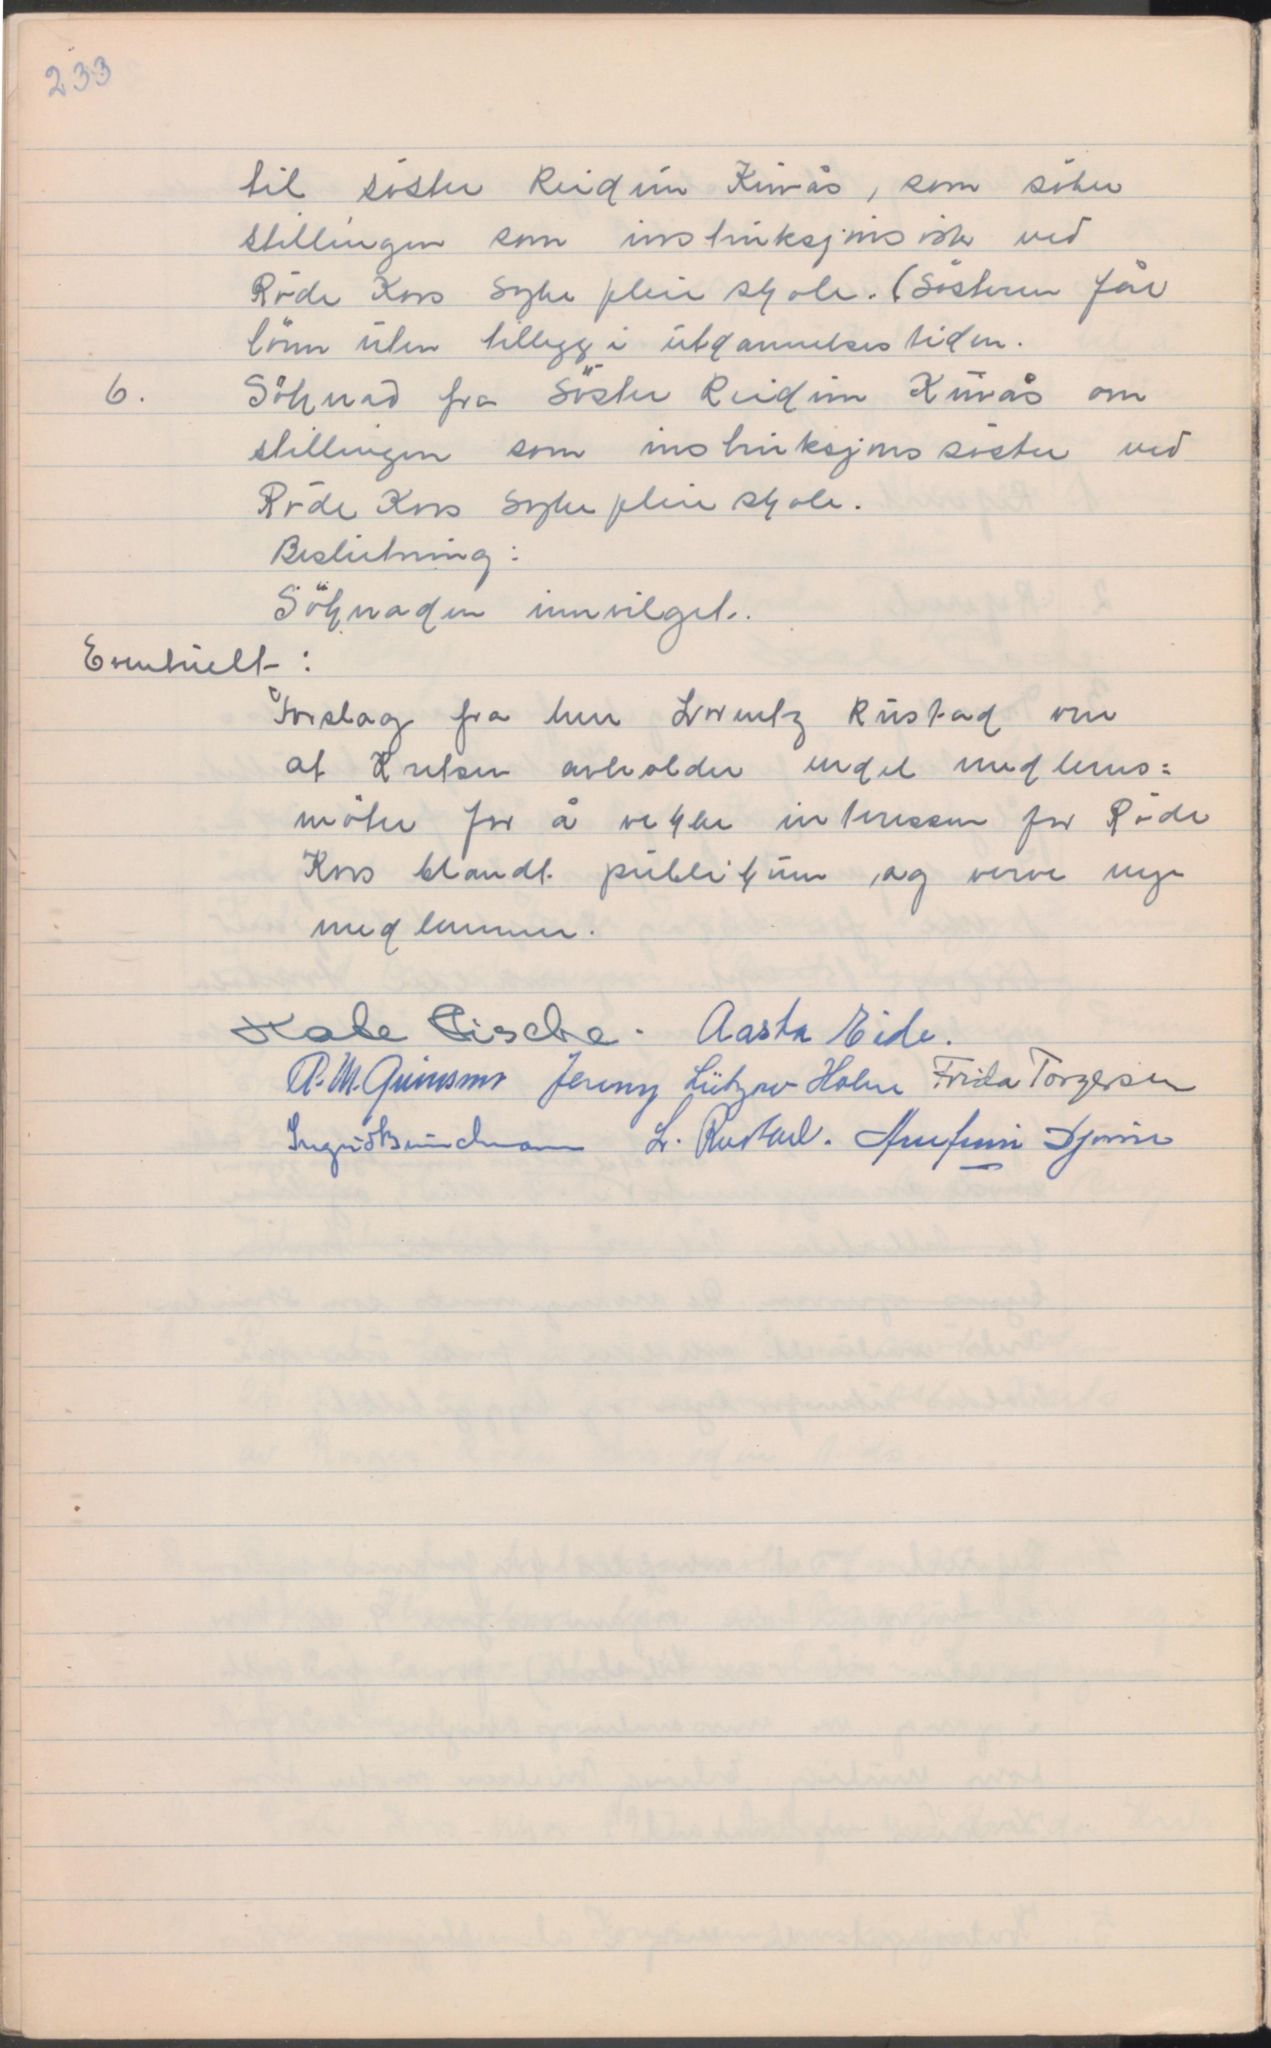 233
til söster Reidun Kirvås, som söker
stillingen som instruksjonssöster ved
Röde Kors Sykepleieskole. (Sösteren får
lönn uten tillegg i utdannelsestiden.
6. Söknad fra Söster Reidun Kirvås om
stillingen som instruksjonssöster ved
Röde Kors Sykepleieskole.
Beslutning:
Söknaden innvilget.
Eventuelt:
Forslag fra herr Lorentz Rustad om
at Kretsen avholder endel medlems=
möter for å vekke interessen for Röde
Kors blandt publikum, og verve nye
medlemmer.
Aasta Eide.
Jenny Lützow Holm Frida Torgersen
L. Rustad.